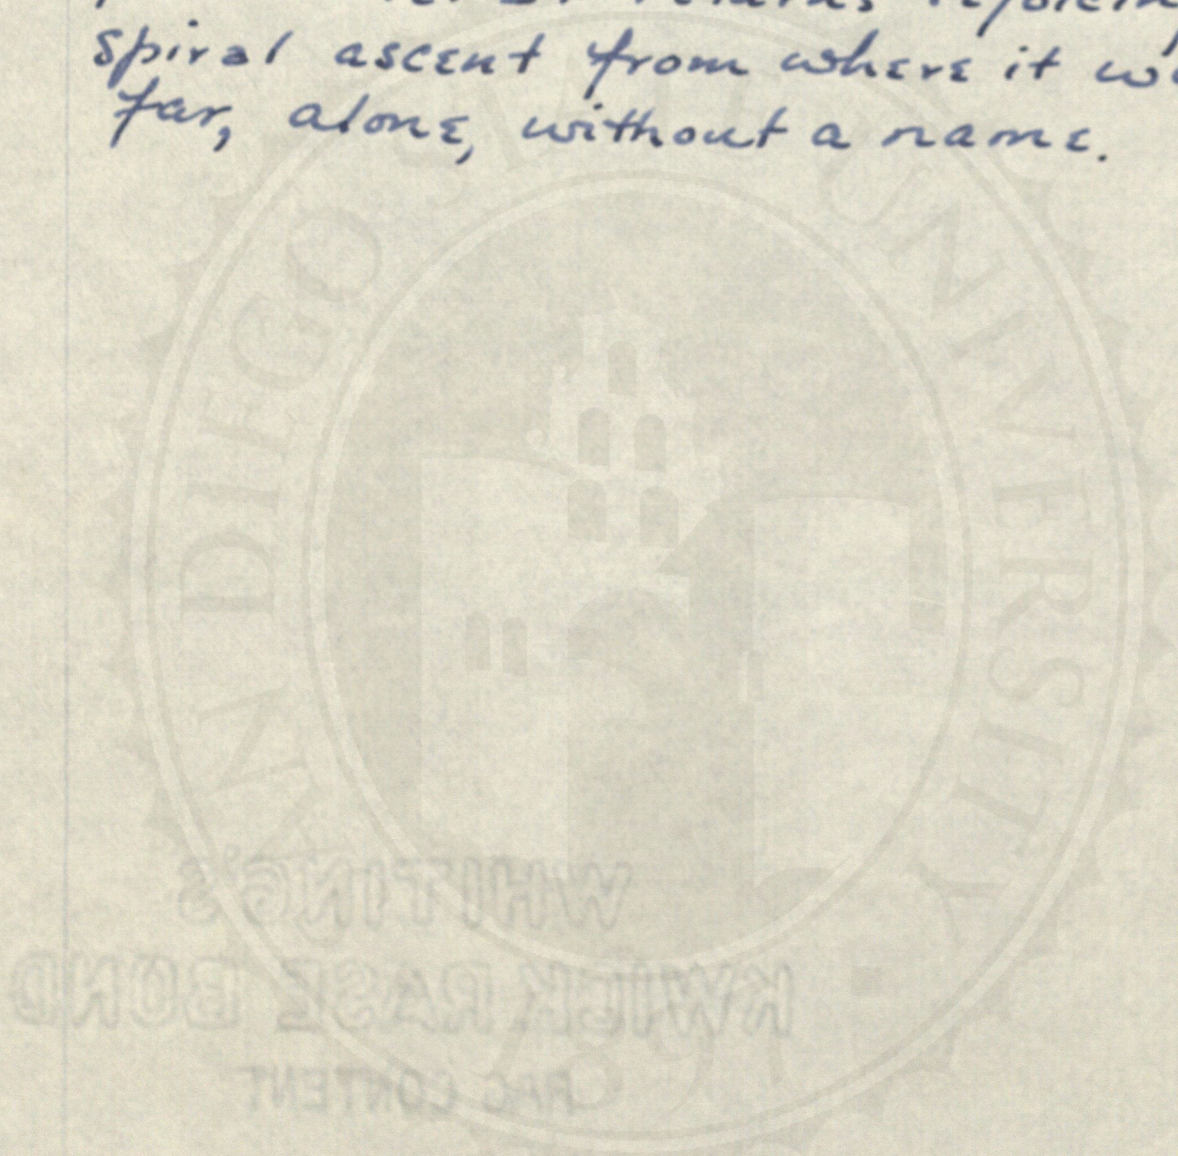 returns
spiral ascent from where it
far, alone, without a name.
SAN DIEGO STATE UNIVERSITY
1897
WHITING'S
KWICK RASE BOND
RAG CONTENT